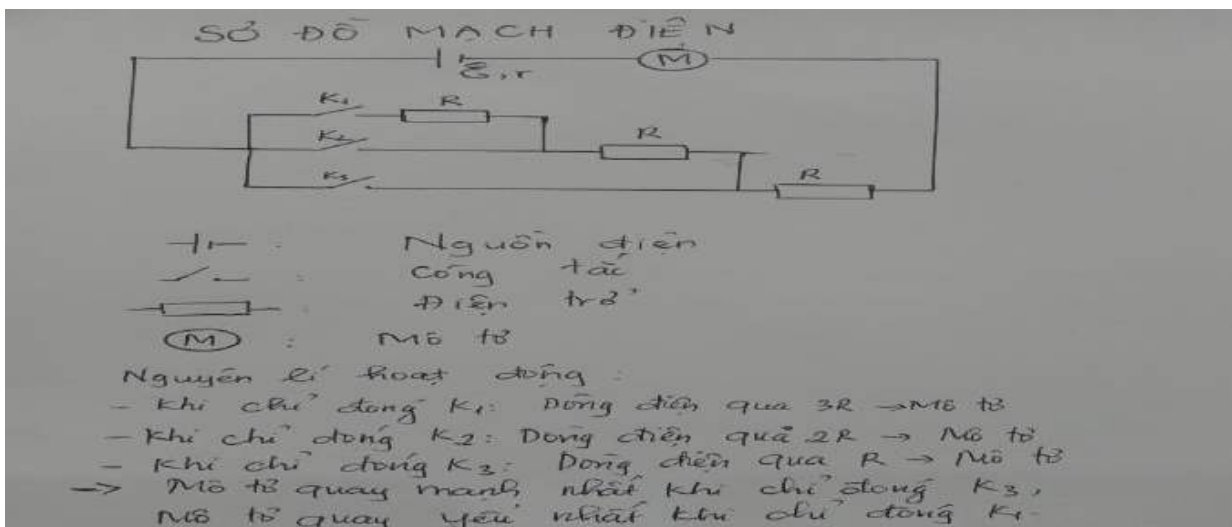 SƠ ĐỒ MẠCH ĐIỆN
M
ξ,r
K₁
R
K₂
R
K₃
R
: Nguồn điện
: Công tắc
: Điện trở
M : Mô tơ
Nguyên lí hoạt động :
- Khi chỉ đóng K₁: Dòng điện qua 3R → Mô tơ
- Khi chỉ đóng K₂: Dòng điện qua 2R → Mô tơ
- Khi chỉ đóng K₃: Dòng điện qua R → Mô tơ
=> Mô tơ quay mạnh nhất khi chỉ đóng K₃,
Mô tơ quay yếu nhất khi chỉ đóng K₁.